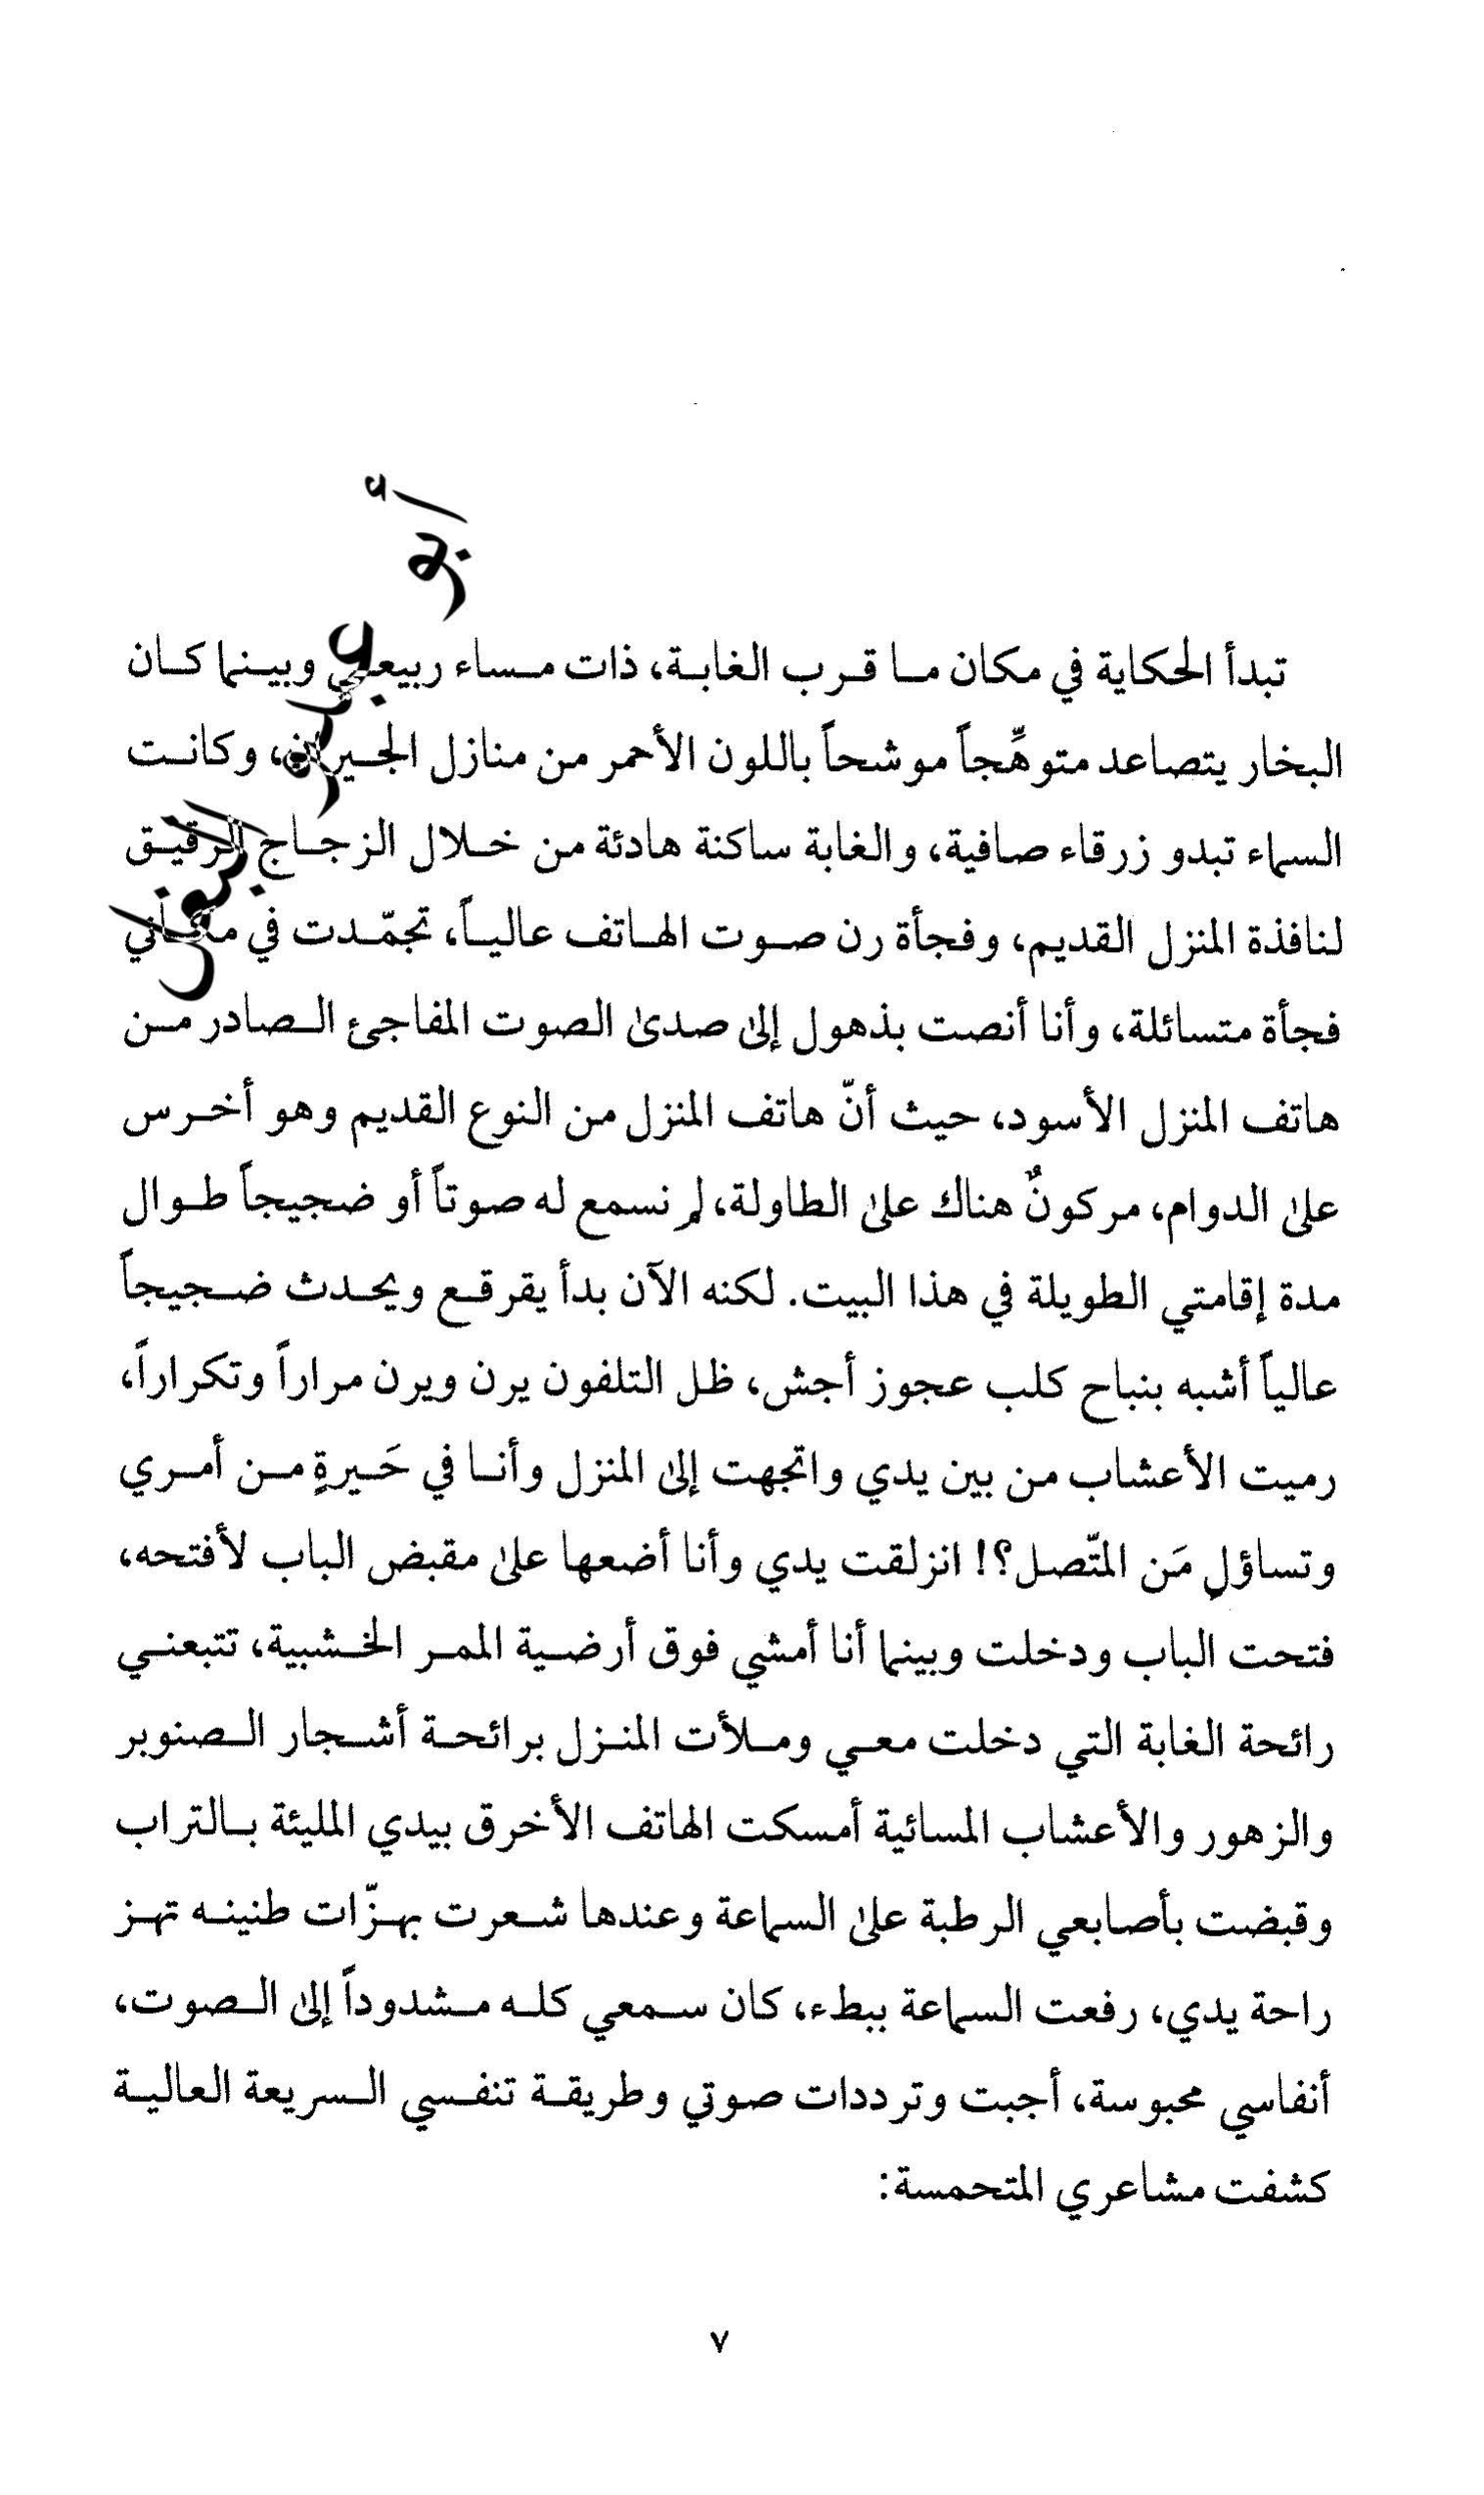 تبدأ الحكاية في مكان ما قرب الغابة، ذات مساء ربيعي وبينما كان
البخار يتصاعد متوهِّجاً موشحاً باللون الأحمر من منازل الجيران، وكانت
السماء تبدو زرقاء صافية، والغابة ساكنة هادئة من خلال الزجاج الرقيق
لنافذة المنزل القديم، وفجأة رن صوت الهاتف عالياً، تجمّدت في مكاني
فجأة متسائلة، وأنا أنصت بذهول إلى صدى الصوت المفاجئ الصادر من
هاتف المنزل الأسود، حيث أنّ هاتف المنزل من النوع القديم وهو أخرس
على الدوام، مركونٌ هناك على الطاولة، لم نسمع له صوتاً أو ضجيجاً طوال
مدة إقامتي الطويلة في هذا البيت. لكنه الآن بدأ يقرقع ويحدث ضجيجاً
عالياً أشبه بنباح كلب عجوز أجش، ظل التلفون يرن ويرن مراراً وتكراراً،
رميت الأعشاب من بين يدي واتجهت إلى المنزل وأنا في حَيرةٍ من أمري
وتساؤلٍ مَن المتّصل؟! انزلقت يدي وأنا أضعها على مقبض الباب لأفتحه،
فتحت الباب ودخلت وبينما أنا أمشي فوق أرضية الممر الخشبية، تتبعني
رائحة الغابة التي دخلت معي وملأت المنزل برائحة أشجار الصنوبر
والزهور والأعشاب المسائية أمسكت الهاتف الأخرق بيدي المليئة بالتراب
وقبضت بأصابعي الرطبة على السماعة وعندها شعرت بهزّات طنينه تهز
راحة يدي، رفعت السماعة ببطء، كان سمعي كله مشدوداً إلى الصوت،
أنفاسي محبوسة، أجبت وترددات صوتي وطريقة تنفسي السريعة العالية
كشفت مشاعري المتحمسة:
٧